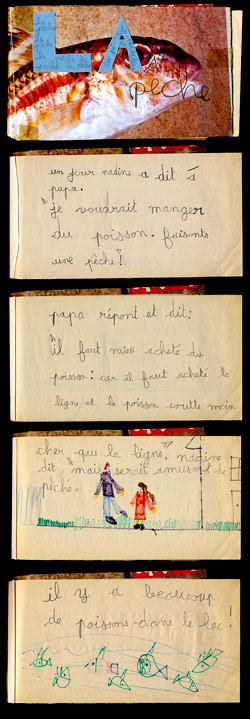 LA
pêche
un jour nadine a dit à
papa.
"je voudrait manger
du poisson. faisonts
une pêche"!
papa répont et dit:
"il faut mieu acheté du
poisson: car il faut acheté la
ligne et le poisson coutte moin
cher que la ligne." nadine
dit "mais serait amusant de
pêche.
il y a beaucoup
de poissons dans le lac!